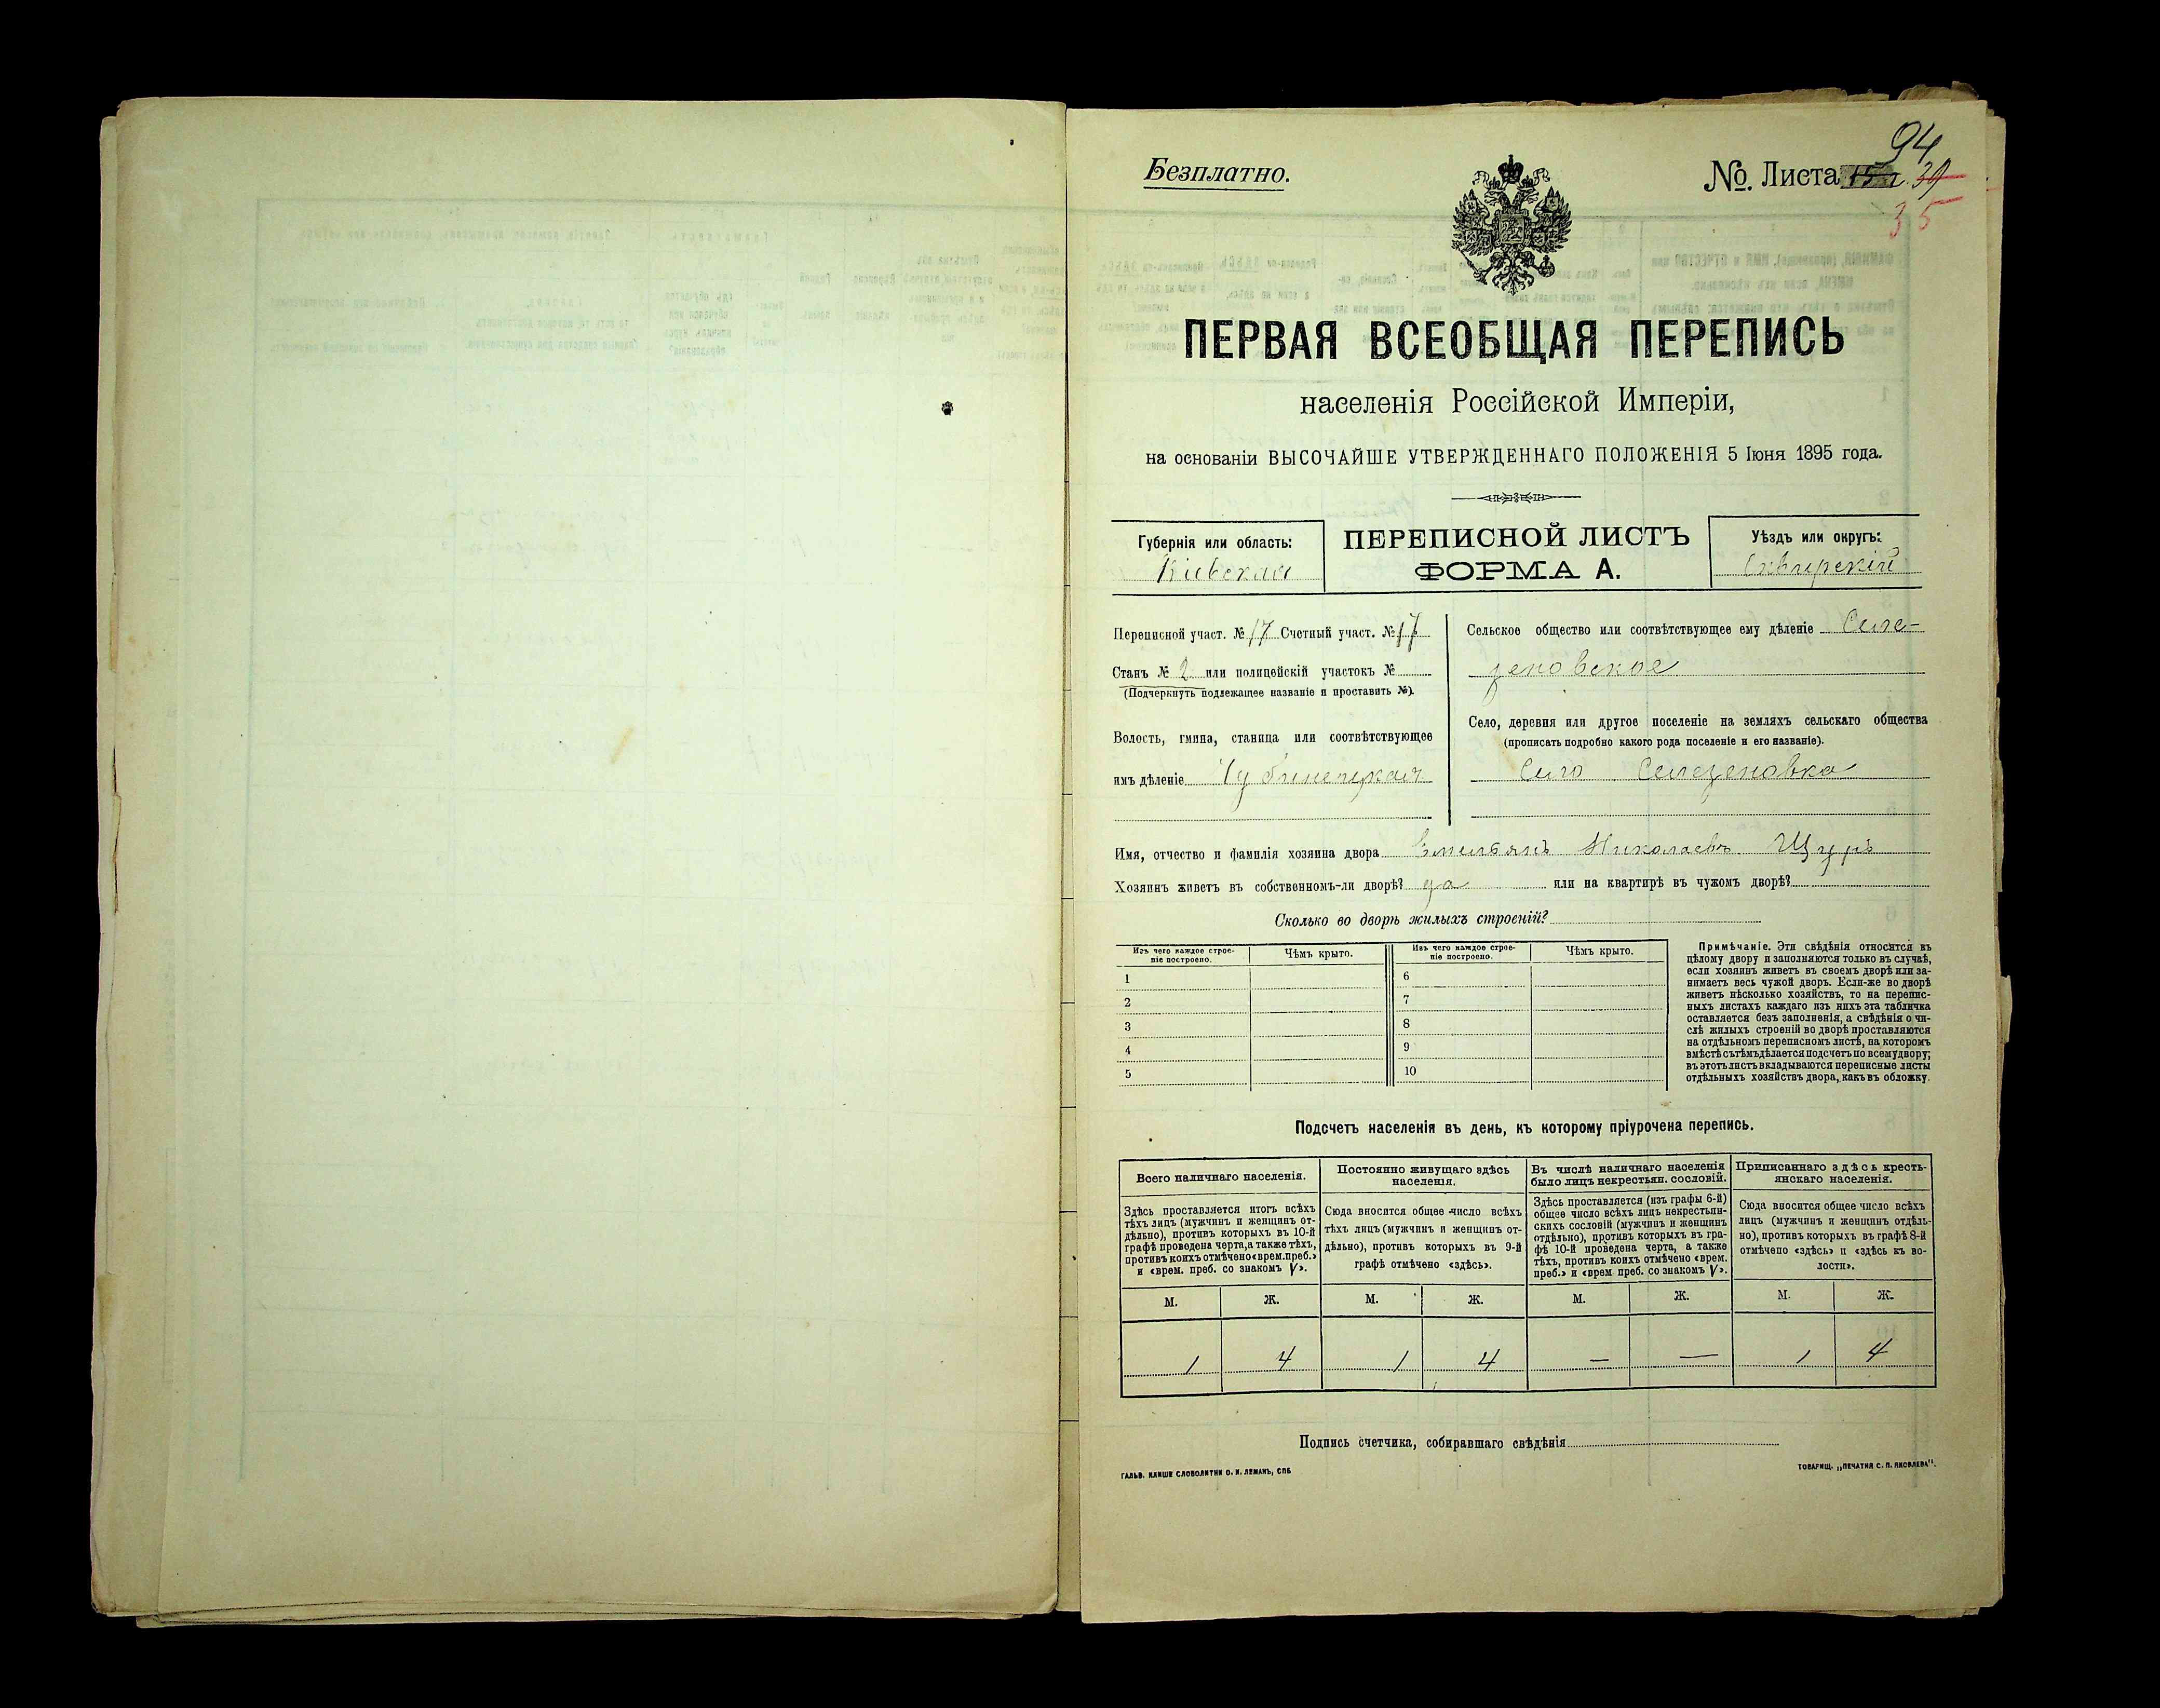 94
Безплатно.
№ Листа 39
35
ПЕРВАЯ ВСЕОБЩАЯ ПЕРЕПИСЬ
населенія Россійской Имперіи,
на основаніи ВЫСОЧАЙШЕ УТВЕРЖДЕННАГО ПОЛОЖЕНІЯ 5 Іюня 1895 года.
Губернія или область:
Кіевская
ПЕРЕПИСНОЙ ЛИСТЪ
ФОРМА А.
Уѣздъ или округъ:
Сквирскій
Переписной участ. № 17 Счетный участ. № 17
Станъ № 2 или полицейскій участокъ №
(Подчеркнуть подлежащее названіе и проставить №).
Волость, гмина, станица или соотвѣтствующее
имъ дѣленіе Чубинецкая
Сельское общество или соотвѣтствующее ему дѣленіе Селе-
зеновское
Село, деревня или другое поселеніе на земляхъ сельскаго общества
(прописать подробно какого рода поселеніе и его названіе).
Село Селезеновка
Имя, отчество и фамилія хозяина двора Емельянъ Николаевъ Щуръ
Хозяинъ живетъ въ собственномъ-ли дворѣ? да или на квартирѣ въ чужомъ дворѣ?
Сколько во дворѣ жилыхъ строеній?
Изъ чего каждое строе-
ніе построено.
Чѣмъ крыто.
Изъ чего каждое строе-
ніе построено.
Чѣмъ крыто.
1
2
3
4
5
6
7
8
9
10
Примѣчаніе. Эти свѣдѣнія относятся къ
цѣлому двору и заполняются только въ случаѣ,
если хозяинъ живетъ въ своемъ дворѣ или за-
нимаетъ весь чужой дворъ. Если-же во дворѣ
живетъ нѣсколько хозяйствъ, то на перепис-
ныхъ листахъ каждаго изъ нихъ эта табличка
оставляется безъ заполненія, а свѣдѣнія о чи-
слѣ жилыхъ строеній во дворѣ проставляются
на отдѣльномъ переписномъ листѣ, на которомъ
вмѣстѣ съ тѣмъ дѣлается подсчетъ по всему двору;
въ этотъ листъ вкладываются переписные листы
отдѣльныхъ хозяйствъ двора, какъ въ обложку.
Подсчетъ населенія въ день, къ которому пріурочена перепись.
Всего наличнаго населенія.
Здѣсь проставляется итогъ всѣхъ
тѣхъ лицъ (мужчинъ и женщинъ от-
дѣльно), противъ которыхъ въ 10-й
графѣ проведена черта, а также тѣхъ,
противъ коихъ отмѣчено «врем. преб.»
и «врем. преб. со знакомъ V».
Постоянно живущаго здѣсь
населенія.
Сюда вносится общее число всѣхъ
тѣхъ лицъ (мужчинъ и женщинъ от-
дѣльно), противъ которыхъ въ 9-й
графѣ отмѣчено «здѣсь».
Въ числѣ наличнаго населенія
было лицъ некрестьян. сословій.
Здѣсь проставляется (изъ графы 6-й)
общее число всѣхъ лицъ некрестьян-
скихъ сословій (мужчинъ и женщинъ
отдѣльно), противъ которыхъ въ гра-
фѣ 10-й проведена черта, а также
тѣхъ, противъ коихъ отмѣчено «врем.
преб.» и «врем преб. со знакомъ V».
Приписаннаго здѣсь кресть-
янскаго населенія.
Сюда вносится общее число всѣхъ
лицъ (мужчинъ и женщинъ отдѣль-
но), противъ которыхъ въ графѣ 8-й
отмѣчено «здѣсь» и «здѣсь въ во-
лости».
М. Ж. М. Ж. М. Ж. М. Ж.
1 4 1 4 — — 1 4
Подпись счетчика, собиравшаго свѣдѣнія
ГАЛЬВ. КЛИШЕ СЛОВОЛИТНИ О. И. ЛЕМАНЪ, СПБ
ТОВАРИЩ. „ПЕЧАТНЯ С. П. ЯКОВЛЕВА".